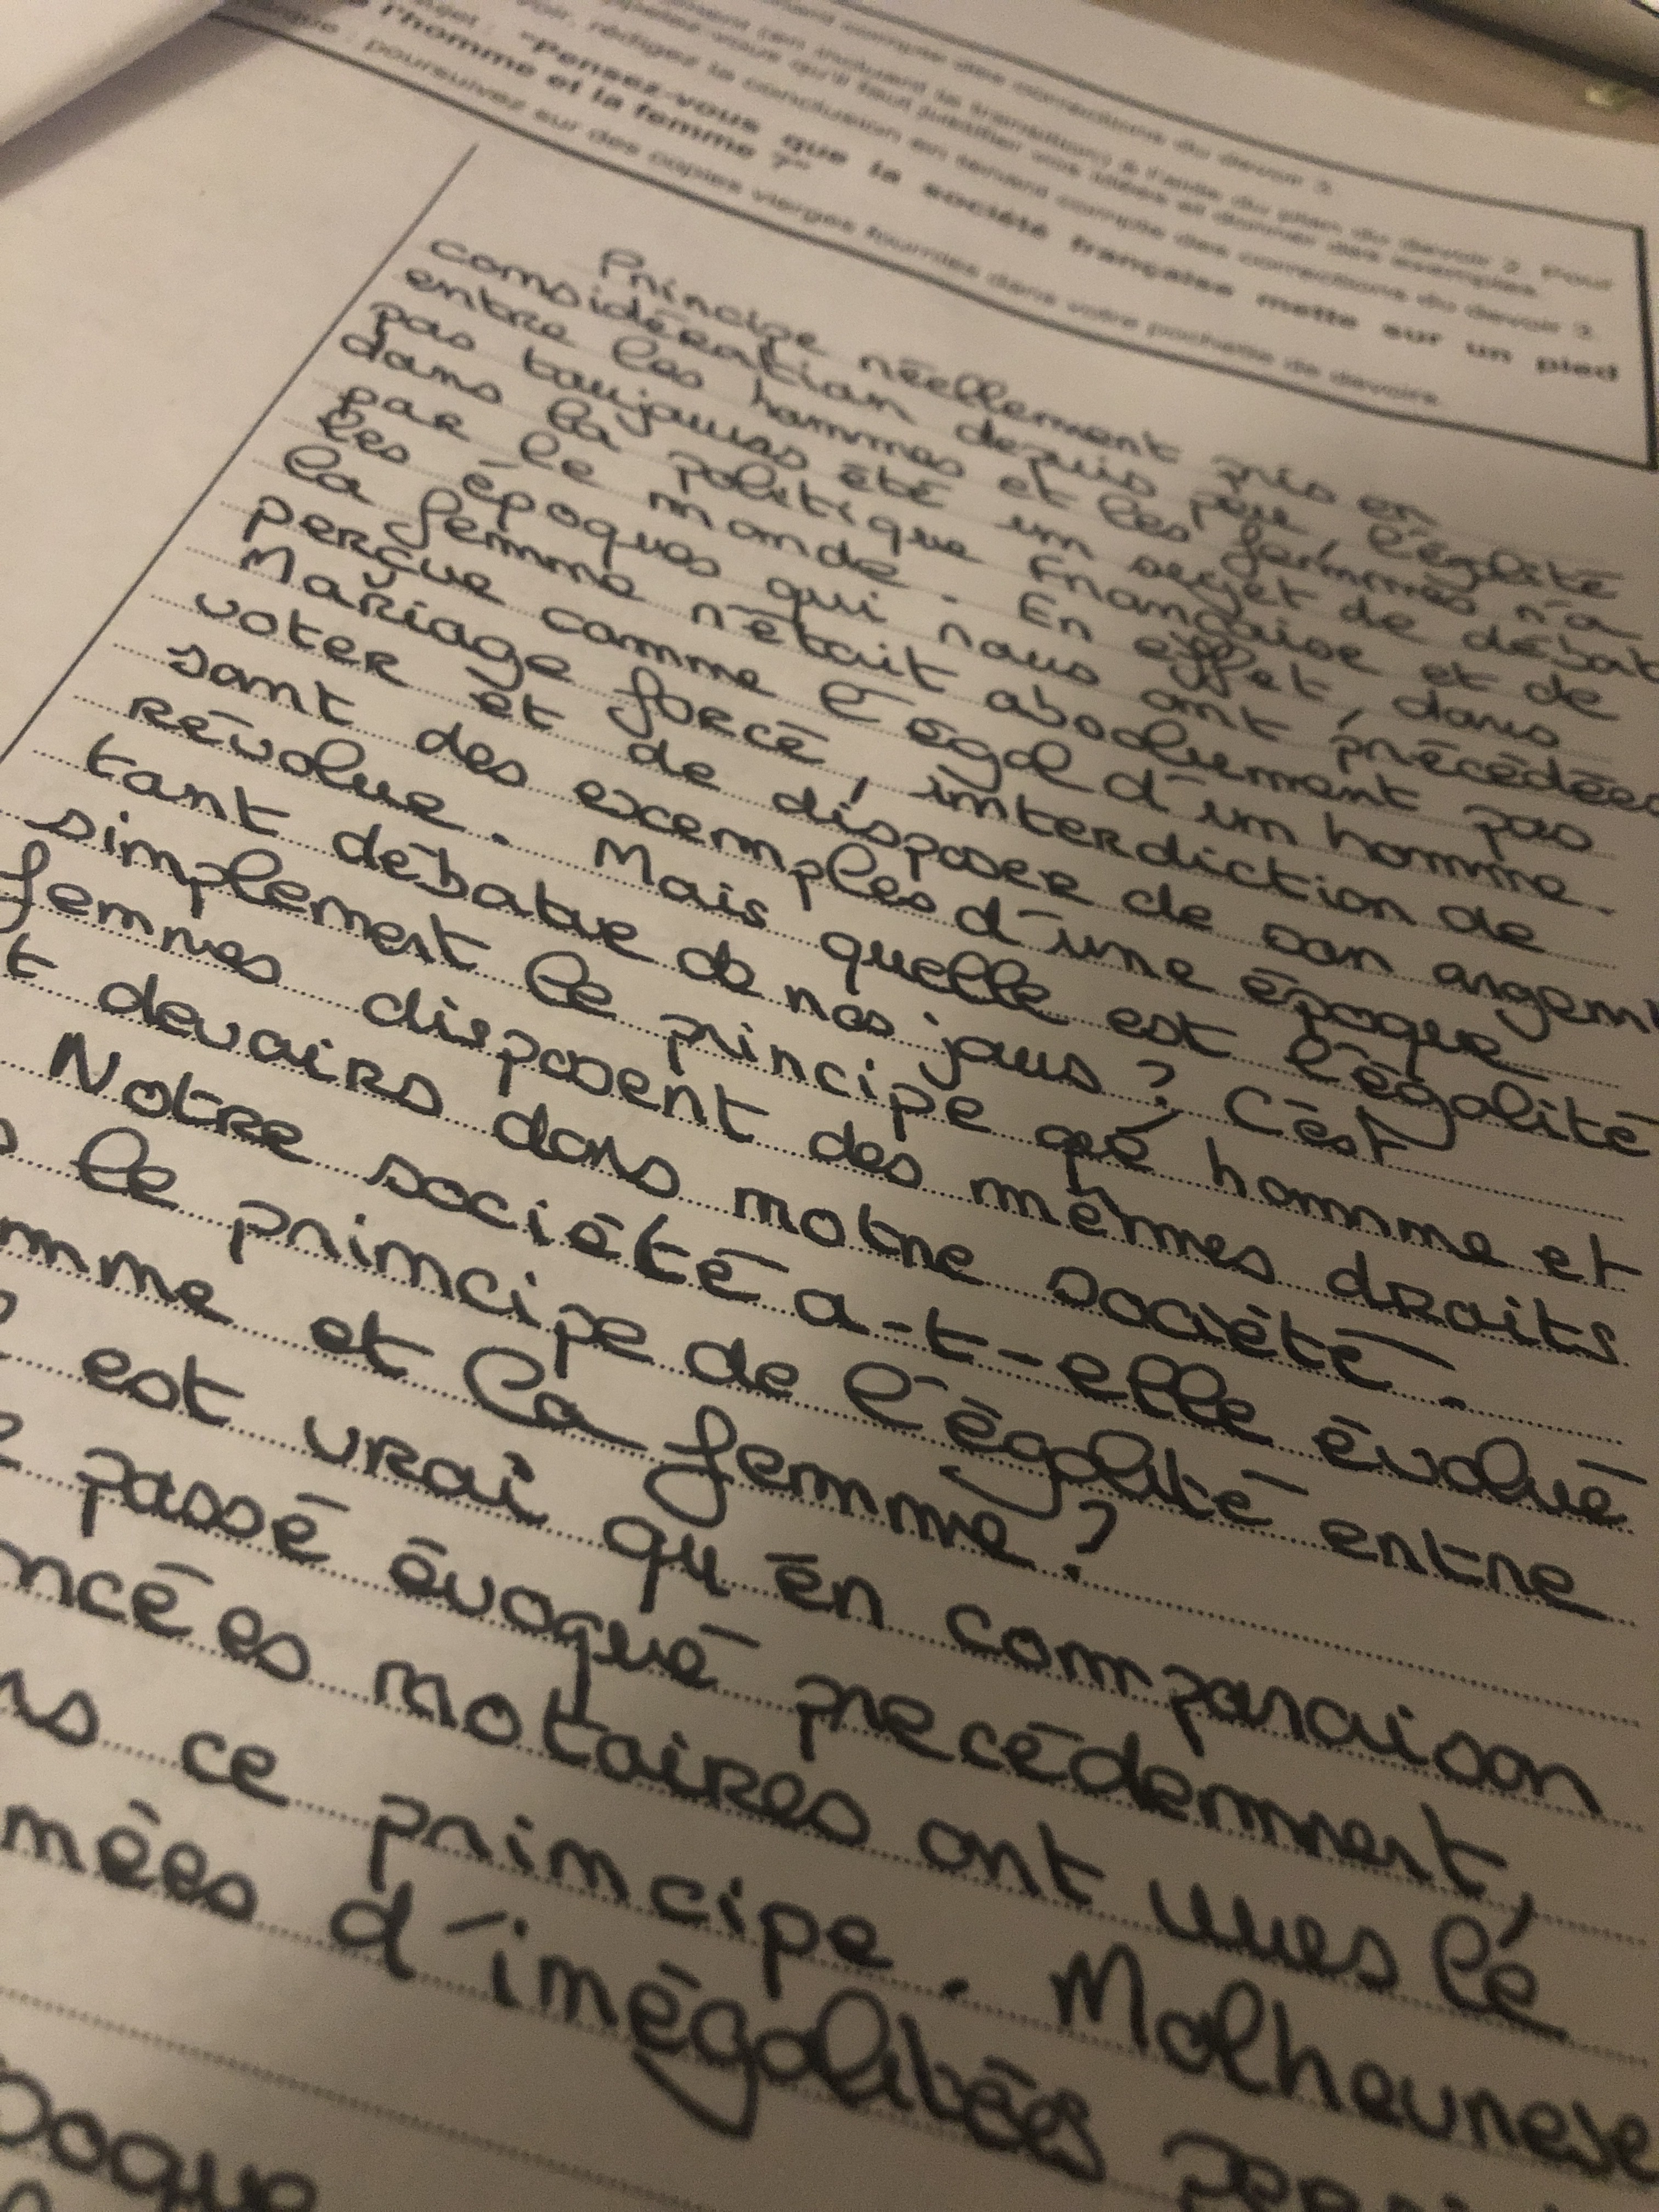 compte des corrections du devoir 3.
(en incluant la transition) à l'aide du plan du devoir 2. Pour
-vous qu'il faut justifier vos idées et donner des exemples.
voir, rédigez la conclusion en tenant compte des corrections du devoir 3.
sujet : "Pensez-vous que la société française mette sur un pied
l'homme et la femme ?"
: poursuivez sur des copies vierges fournies dans votre pochette de devoirs.
Principe réellement pris en
considération depuis peu, l'égalité
entre les hommes et les femmes n'a
pas toujours été un sujet de débat
dans la politique Française et de
par le monde. En effet, dans
les époques qui nous ont précédées
la femme n'était absolument pas
perçue comme l'égal d'un homme.
Mariage forcé, interdiction de
voter et de disposer de son argent
sont des exemples d'une époque
révolue. Mais quelle est l'égalité
tant débatue de nos jours ? C'est
simplement le principe que homme et
femmes disposent des mêmes droits
t devoirs dans notre société.
Notre société a-t-elle évolué
le principe de l'égalité entre
mme et la femme ?
est vrai qu'en comparaison
passé évoqué precédemment,
ncées notaires ont vues le
ns ce principe. Malheureuse
mées d'inégalités per
poque